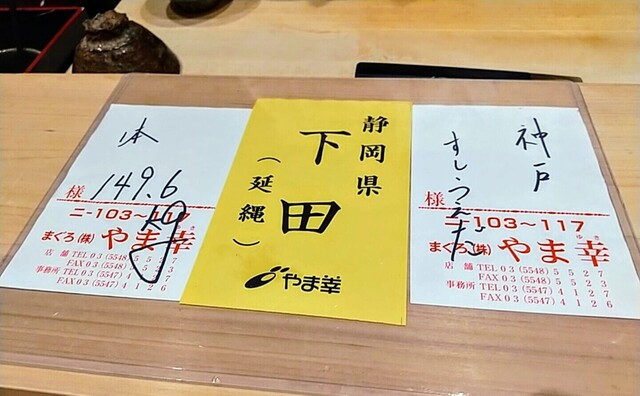 本
149.6
様
ニ-103~117
まぐろ(株)やま幸
店舗 TEL 03 (5548) 5 5 2 7
FAX 03 (5548)
事務所 TEL 03 (5547) 4 1 2 7
FAX 03 (5547) 4 1 2 6
静岡県
下田
(延縄)
やま幸
神戸
すし うえだ
様
ニ-103~117
まぐろ(株)やま幸
ゆき
店舗 TEL 03 (5548) 5 5 2 7
FAX 03 (5548) 5 5 2 3
事務所 TEL 03 (5547) 4 1 2 7
FAX 03 (5547) 4 1 2 6